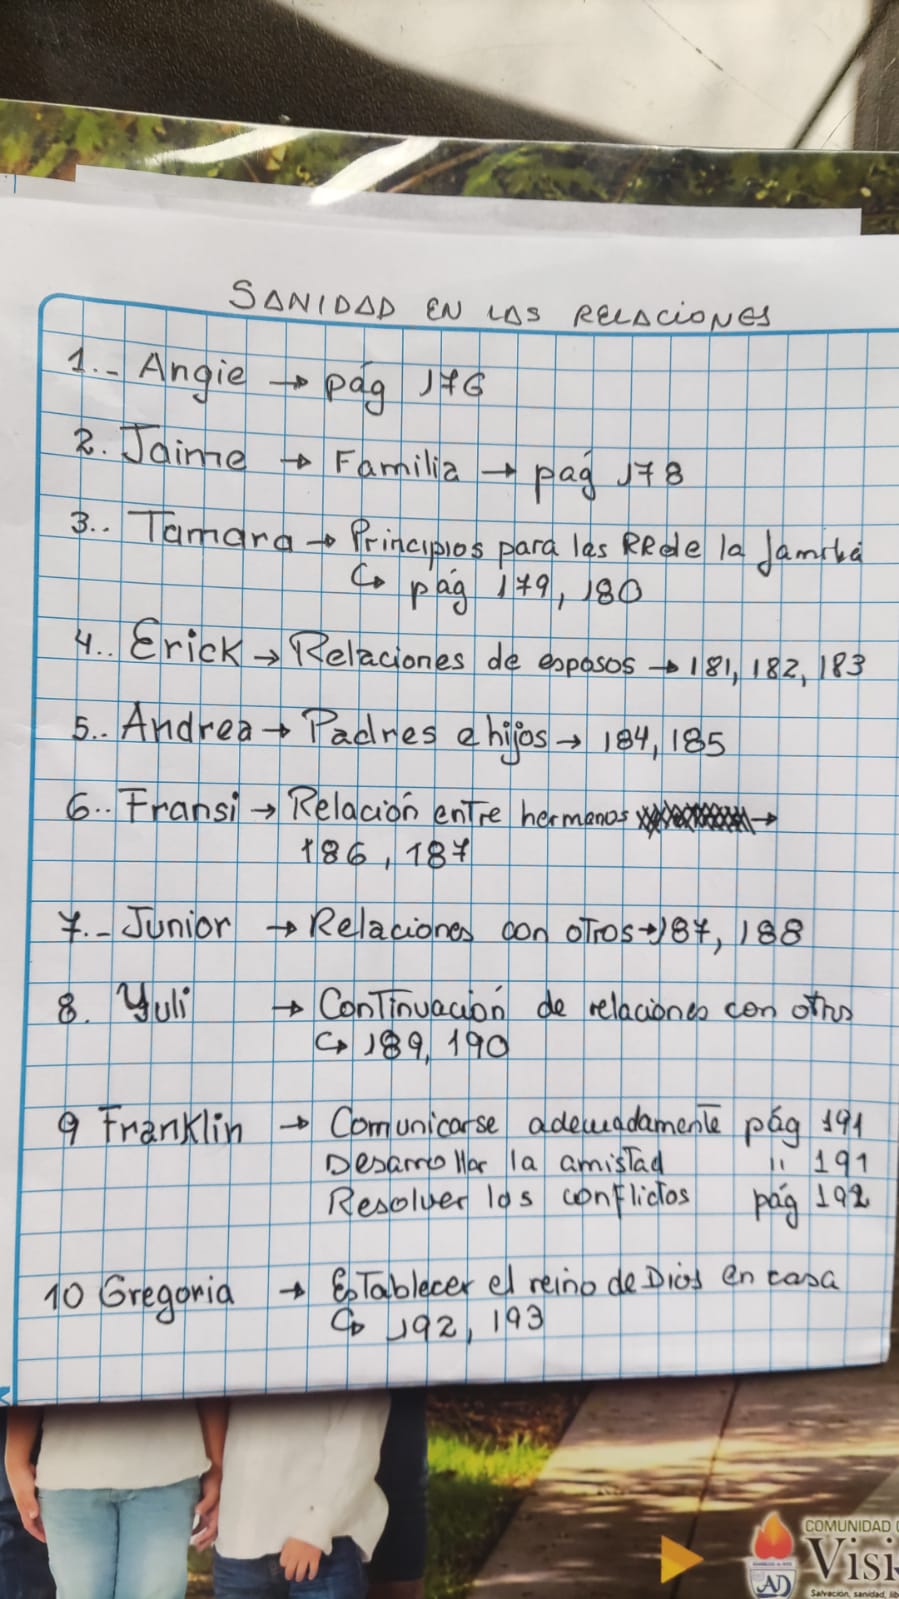 SANIDAD EN LAS RELACIONES
1.- Angie → pág 176
2. Jaime → Familia → pág 178
3.. Tamara → Principios para las RR de la familia
↳ pág 179, 180
4.. Erick → Relaciones de esposos → 181, 182, 183
5.. Andrea → Padres e hijos → 184, 185
6.. Fransi → Relación entre hermanos →
186, 187
7.- Junior → Relaciones con otros → 187, 188
8. Yuli → Continuación de relaciones con otros
↳ 189, 190
9 Franklin → Comunicarse adecuadamente pág 191
Desarrollar la amistad " 191
Resolver los conflictos pág 192
10 Gregoria → Establecer el reino de Dios en casa
↳ 192, 193
COMUNIDAD
AD
Salvación, sanidad,